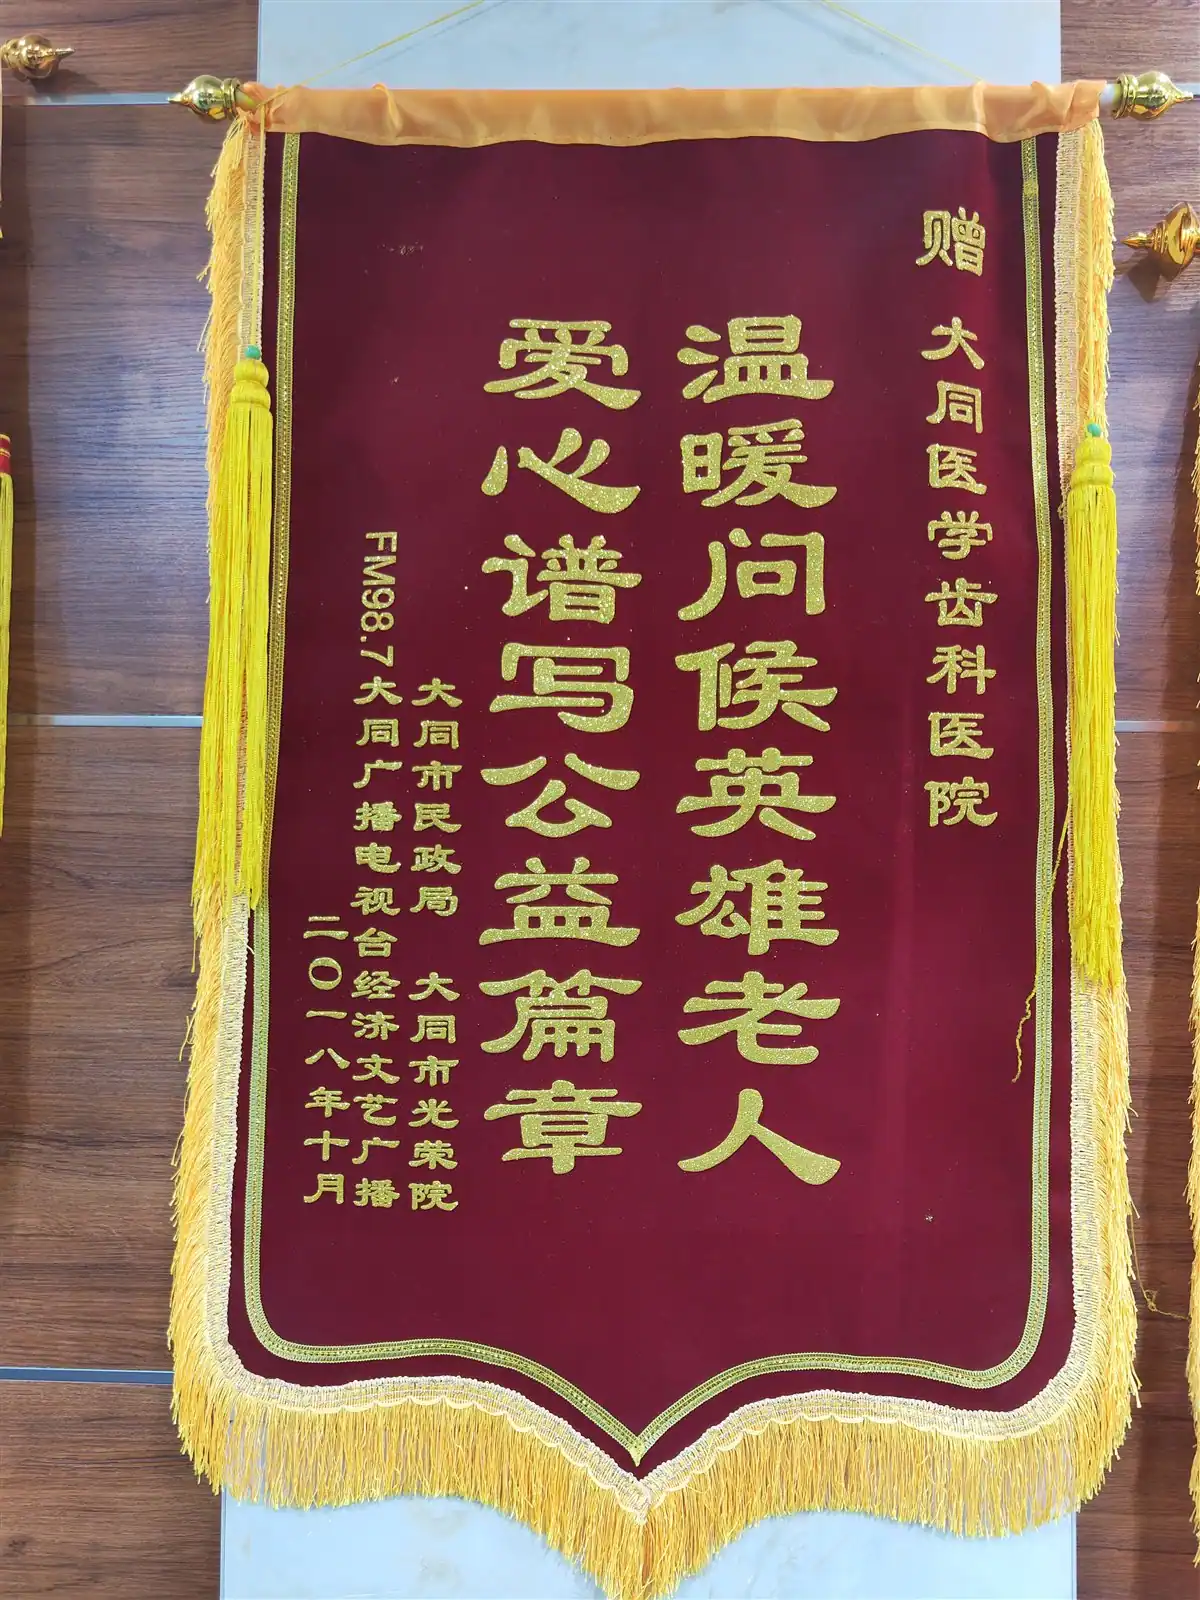 赠 大同医学齿科医院
温暖问候英雄老人
爱心谱写公益篇章
大同市民政局 大同市光荣院
FM98.7大同广播电视台经济文艺广播
二〇一八年十月